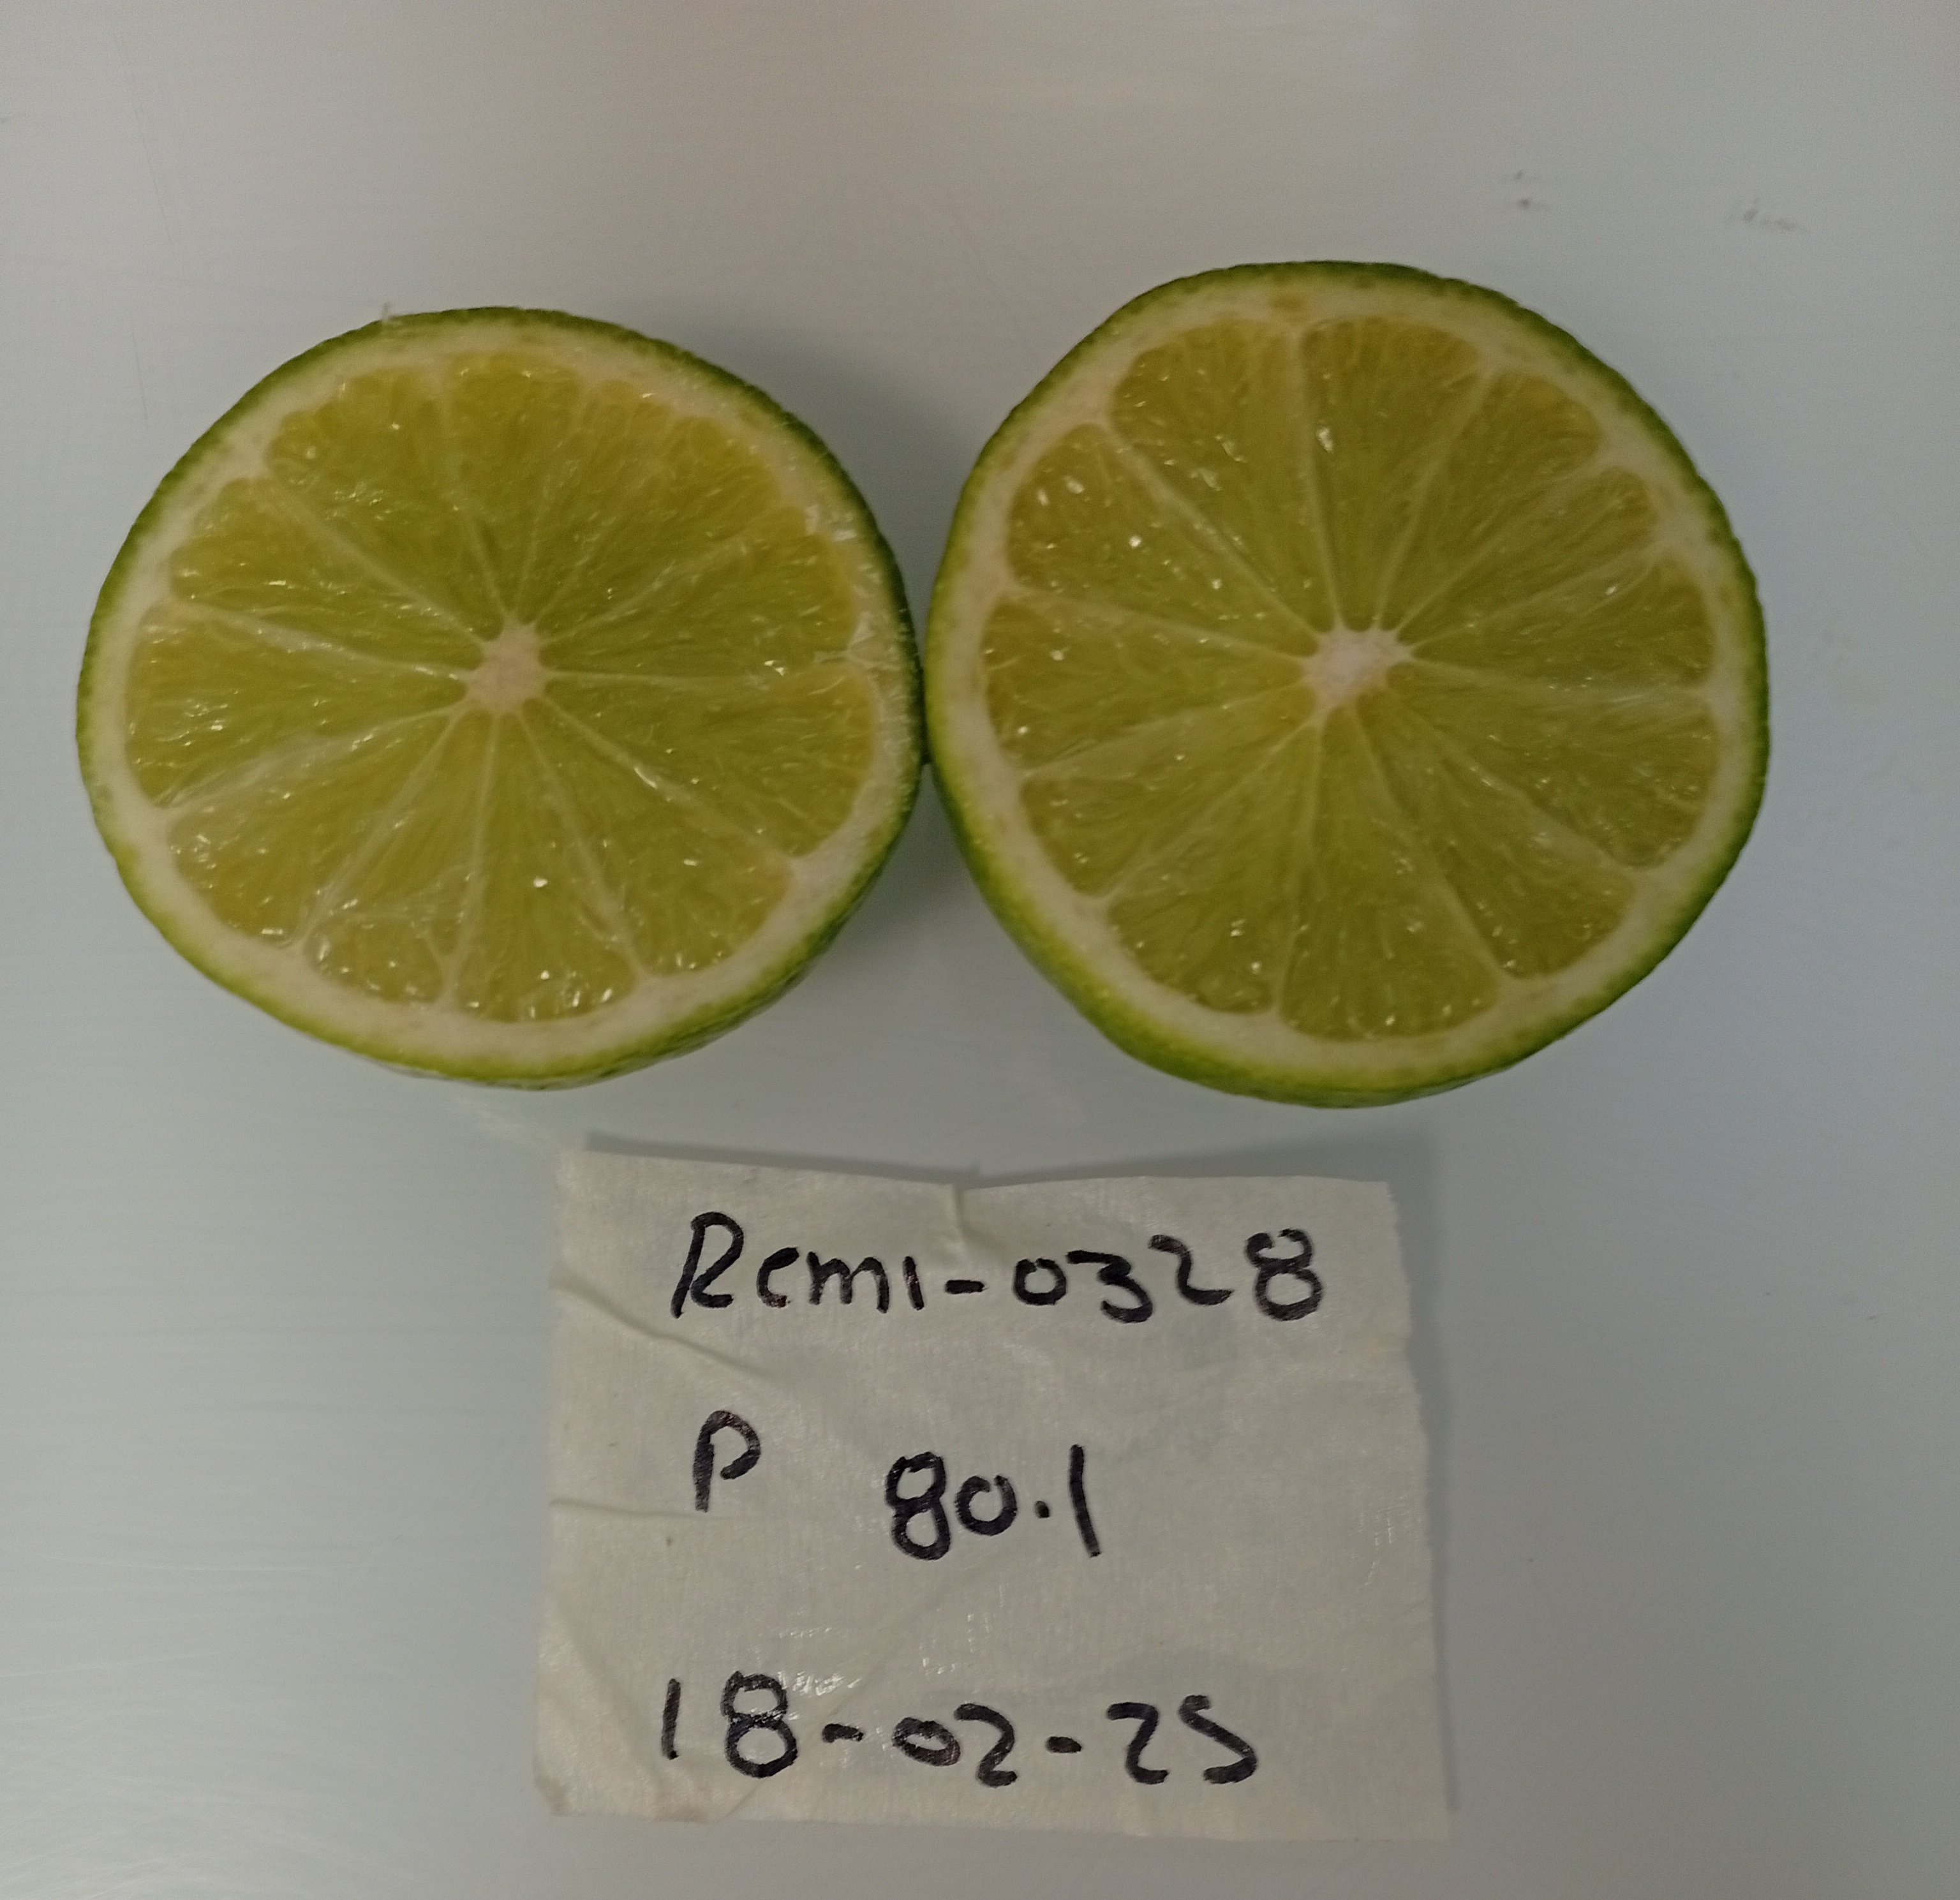 Rcm1-0328
P 80.1
18-02-25